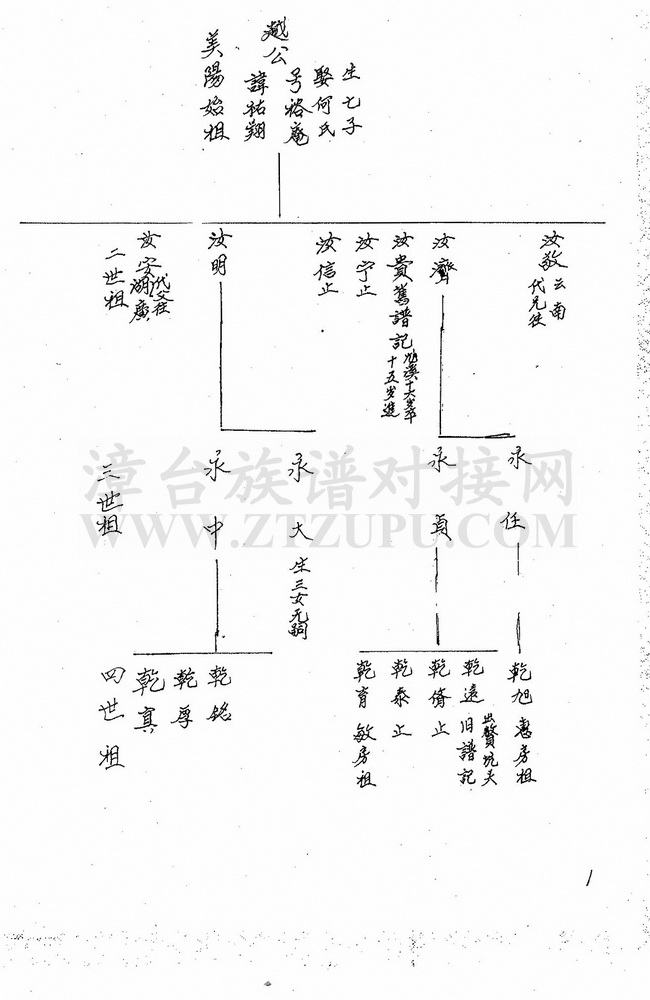 生七子
娶何氏
号裕庵
越公
諱祐翔
美陽始祖
汝敬云南
代兄徃
汝濟
汝貴舊譜記
十五岁進
汝宁止
汝信止
汝明
汝安湖廣
代父徃
二世祖
永任
永貞
永大生三女无嗣
永中
三世祖
乾旭惠房祖
乾遠旧譜記
出贅坑天
乾脩止
乾泰止
乾育敏房祖
乾銘
乾厚
乾真
四世祖
1
漳台族谱对接网
WWW.ZTZUPU.COM